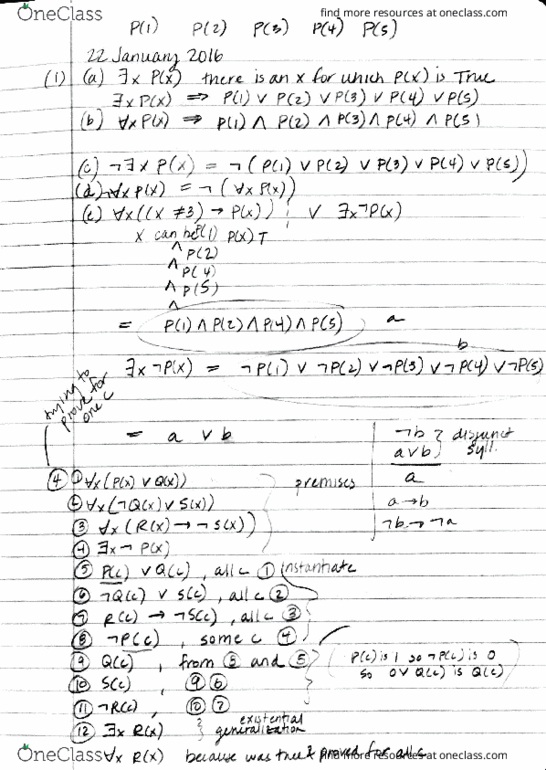 OneClass
find more resources at oneclass.com
P(1) P(2) P(3) P(4) P(5)
22 January 2016
(1) (a) ∃x P(x) there is an x for which P(x) is True
∃x P(x) ⟹ P(1) ∨ P(2) ∨ P(3) ∨ P(4) ∨ P(5)
(b) ∀x P(x) ⇒ P(1) ∧ P(2) ∧ P(3) ∧ P(4) ∧ P(5)
(c) ¬∃x P(x) = ¬(P(1) ∨ P(2) ∨ P(3) ∨ P(4) ∨ P(5))
(d) ¬∀x P(x) = ¬(∀x P(x))
(e) ∀x((x ≠ 3) → P(x)) ∨ ∃x¬P(x)
x can be P(1) P(x) T
∧ P(2)
∧ P(4)
∧ P(5)
∧
= P(1) ∧ P(2) ∧ P(4) ∧ P(5) a
b
∃x ¬P(x) = ¬P(1) ∨ ¬P(2) ∨ ¬P(3) ∨ ¬P(4) ∨ ¬P(5)
trying to
prove for
one c
= a ∨ b
¬b } disjunct
a ∨ b } syll.
a
a → b
¬b → ¬a
④ ① ∀x (P(x) ∨ Q(x))
② ∀x (¬Q(x) ∨ S(x))
premises
③ ∀x (R(x) → ¬S(x))
④ ∃x ¬ P(x)
⑤ P(c) ∨ Q(c), all c ① instantiate
⑥ ¬Q(c) ∨ S(c), all c ②
⑦ R(c) → ¬S(c), all c ③
⑧ ¬P(c), some c ④
⑨ Q(c), from ⑧ and ⑤
(P(c) is 1 so ¬P(c) is 0
so 0 ∨ Q(c) is Q(c))
⑩ S(c), ⑨ ⑥
⑪ ¬R(c), ⑩ ⑦
⑫ ∃x R(x) } existential
generalization
OneClass
∀x R(x) because was true & proved for all c
find more resources at oneclass.com